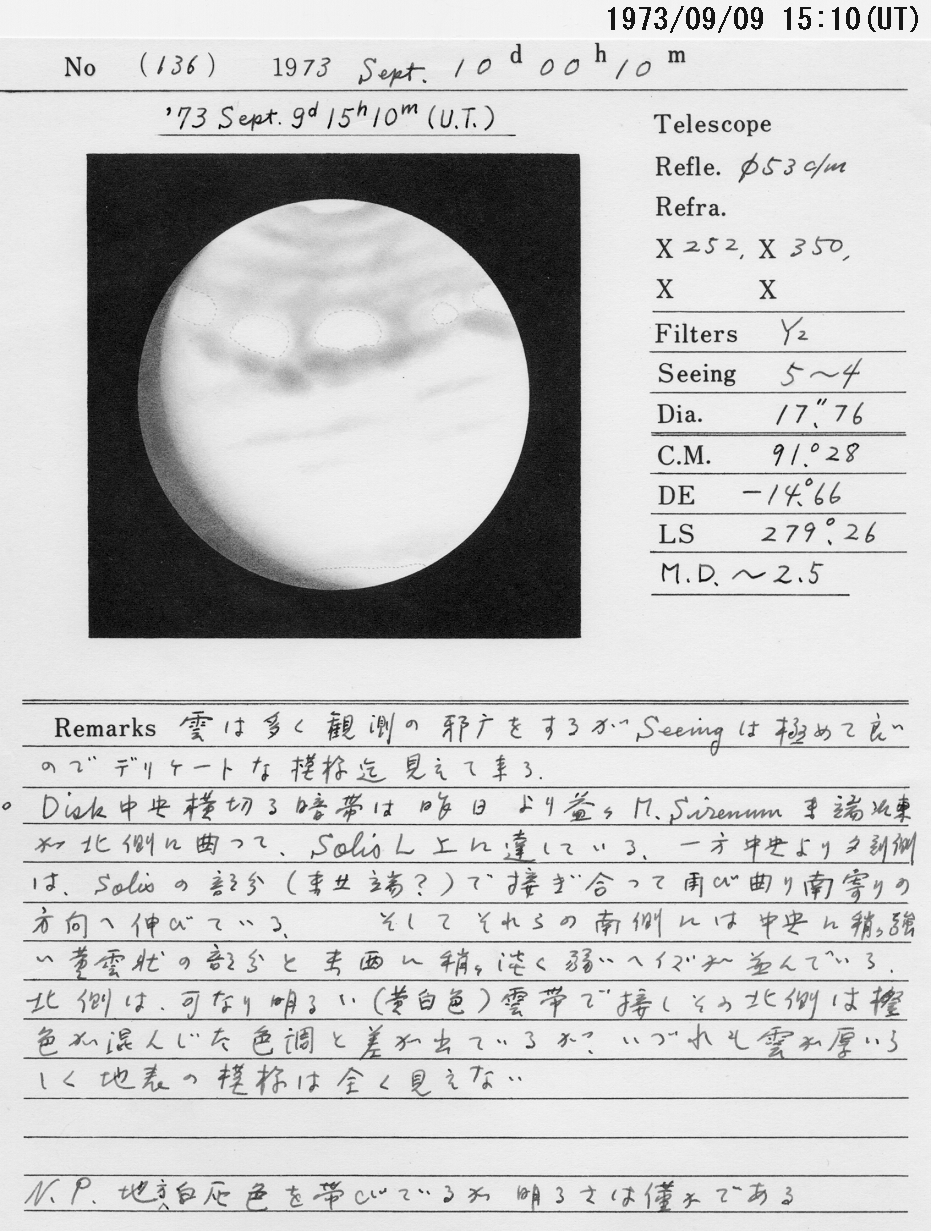 1973/09/09 15:10(UT)
No (136) 1973 Sept. 10 d 00 h 10 m
'73 Sept. 9d 15h 10m (U.T.)
Telescope
Refle. φ53 c/m
Refra.
X 252, X 350,
X X
Filters Y2
Seeing 5~4
Dia. 17."76
C.M. 91.°28
DE -14.°66
LS 279.°26
M.D. ~2.5
Remarks 雲は多く観測の邪广をするが Seeingは極めて良い
のでデリケートな模様迄見えて来る.
Disk中央横切る暗帯は昨日より益々M. Sirenum 東端
が北側に曲って、Solis L 上に達している. 一方中央より夕刻側
は、Solisの部分(東端?)で接ぎ合って再び曲り南寄りの
方向へ伸びている. そしてそれらの南側には中央に稍々強
い黄雲状の部分と東西に稍々淡く弱いヘイズが並んでいる.
北側は、可なり明るい(黄白色)雲帯で接しその北側は橙
色が混んじた色調と差が出ているが? いづれも雲が厚いら
しく地表の模様は全く見えない
N.P. 地方白灰色を帯びているが明るさは僅かである